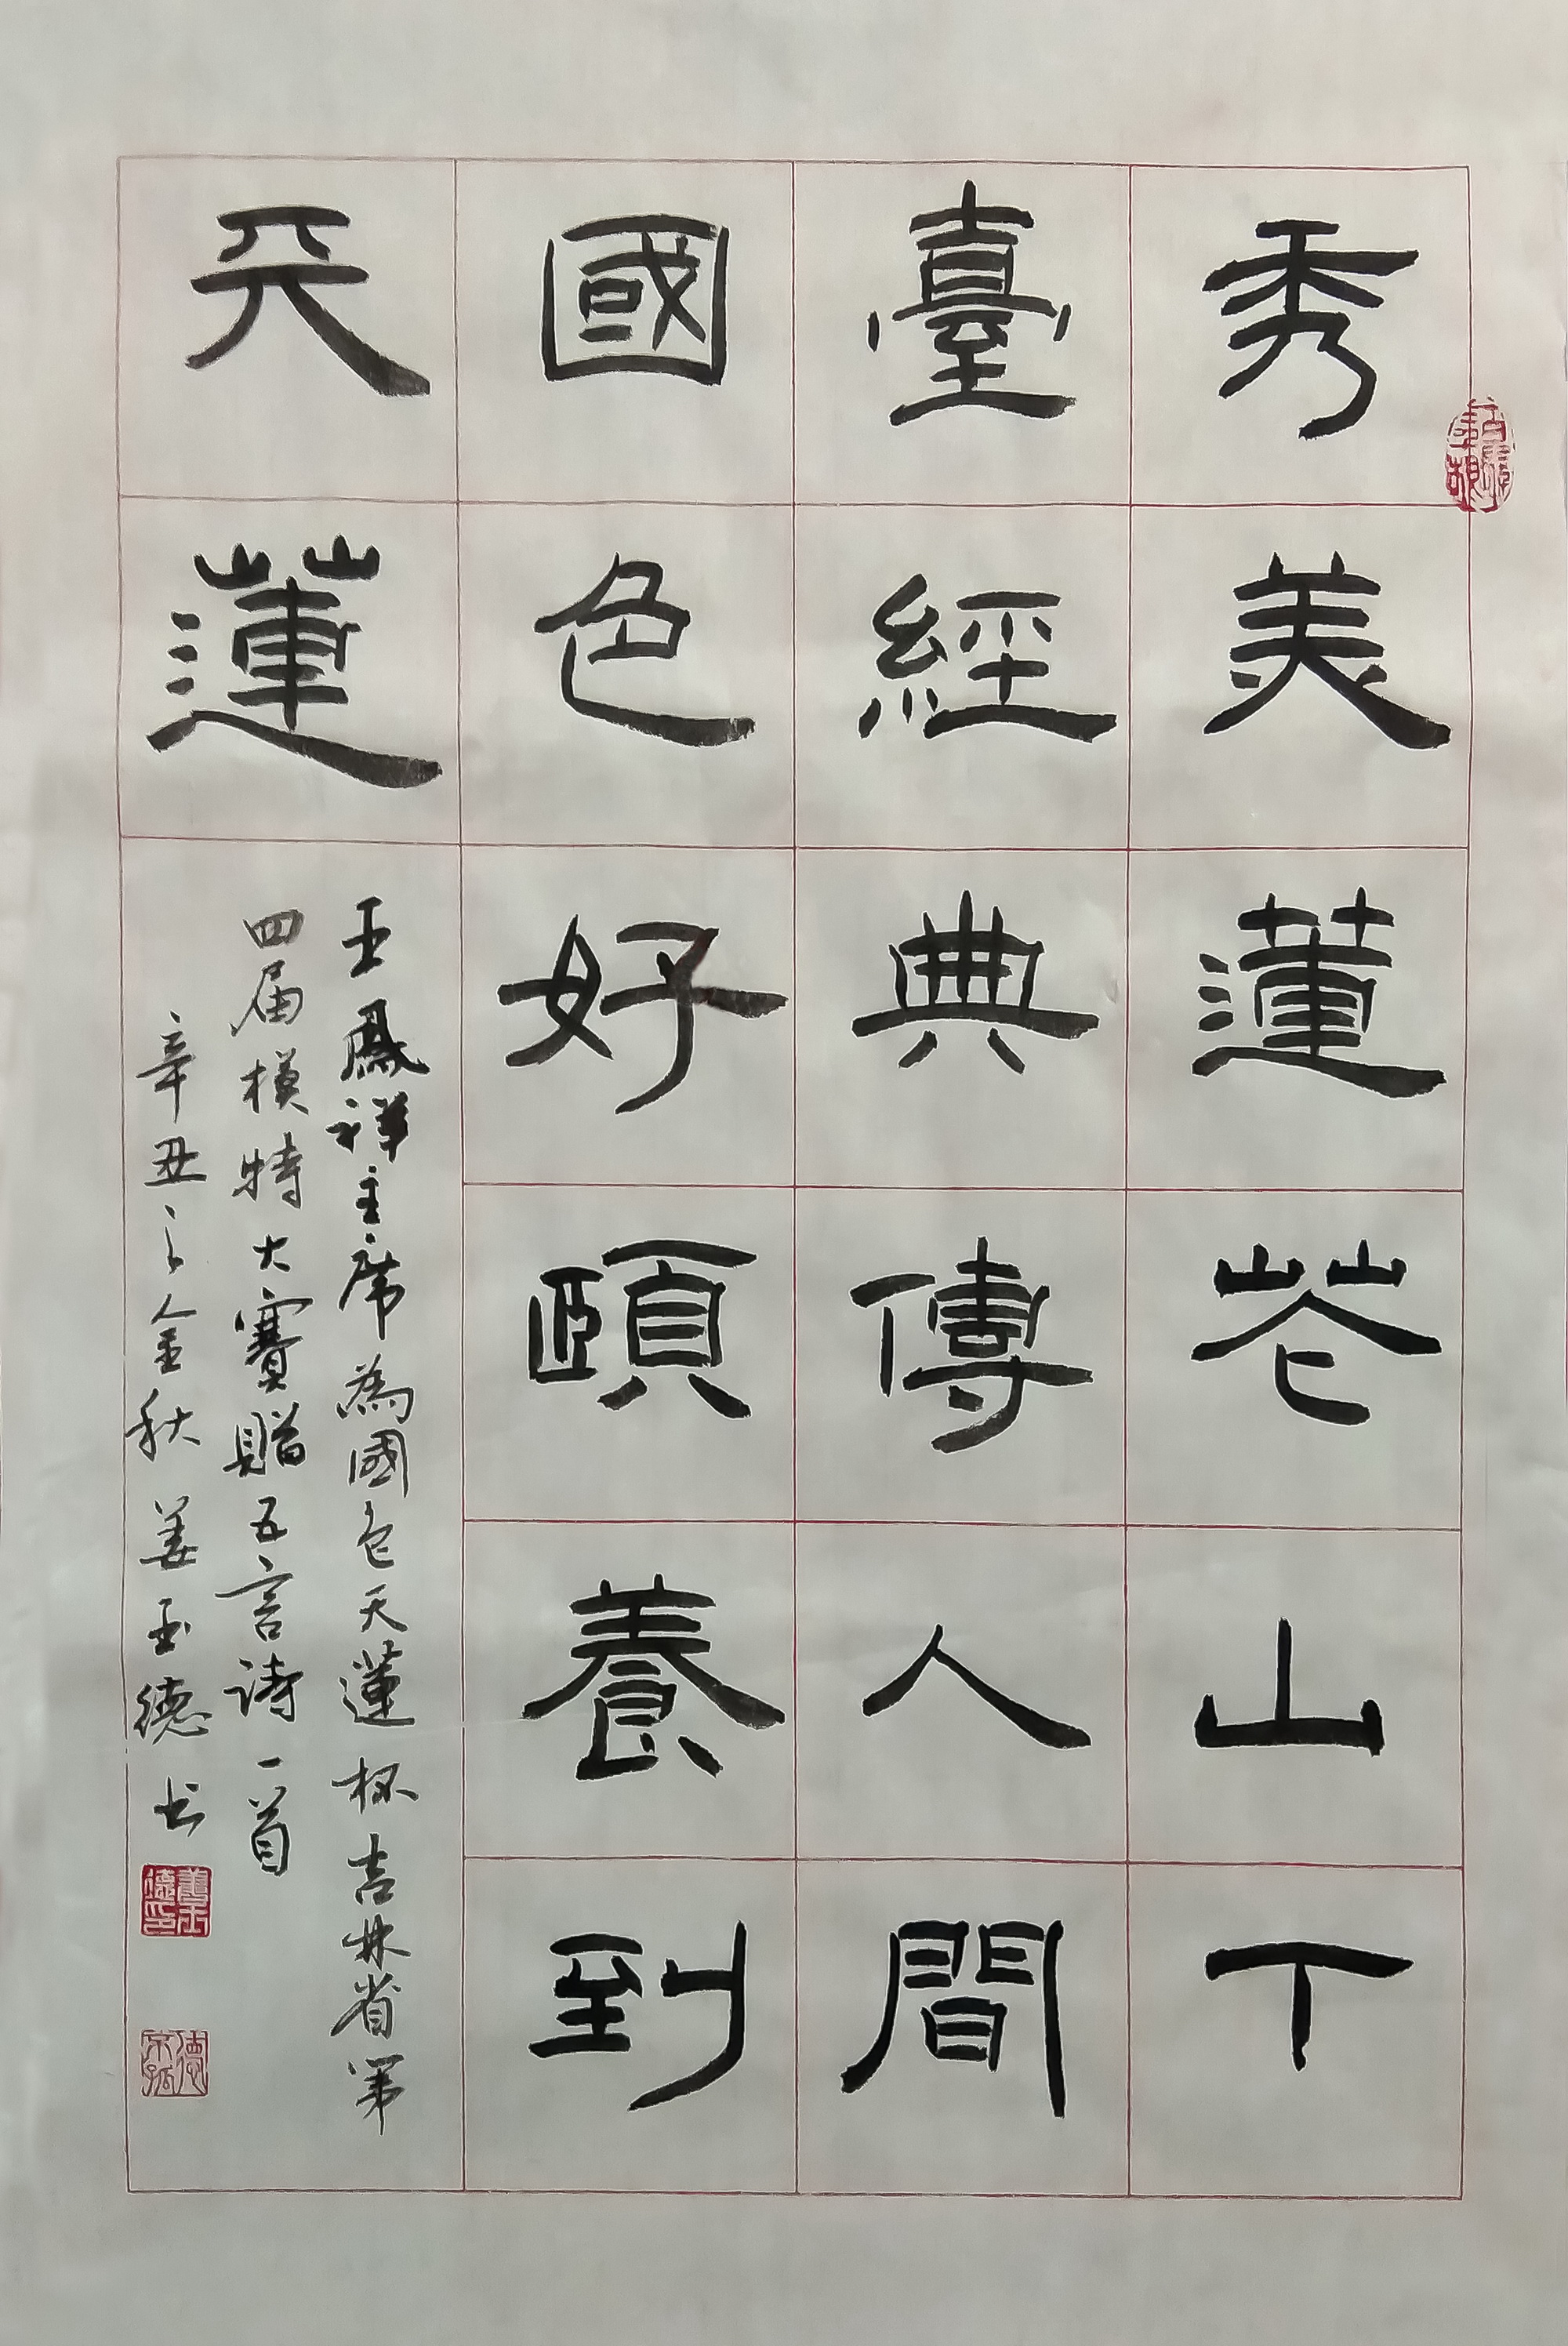 秀美蓮花山下
臺經典傳人間
國色好頤養到
天蓮
王鳳祥主席為國色天蓮杯吉林省第
四届模特大賽贈五言诗一首
辛丑之金秋姜玉德书